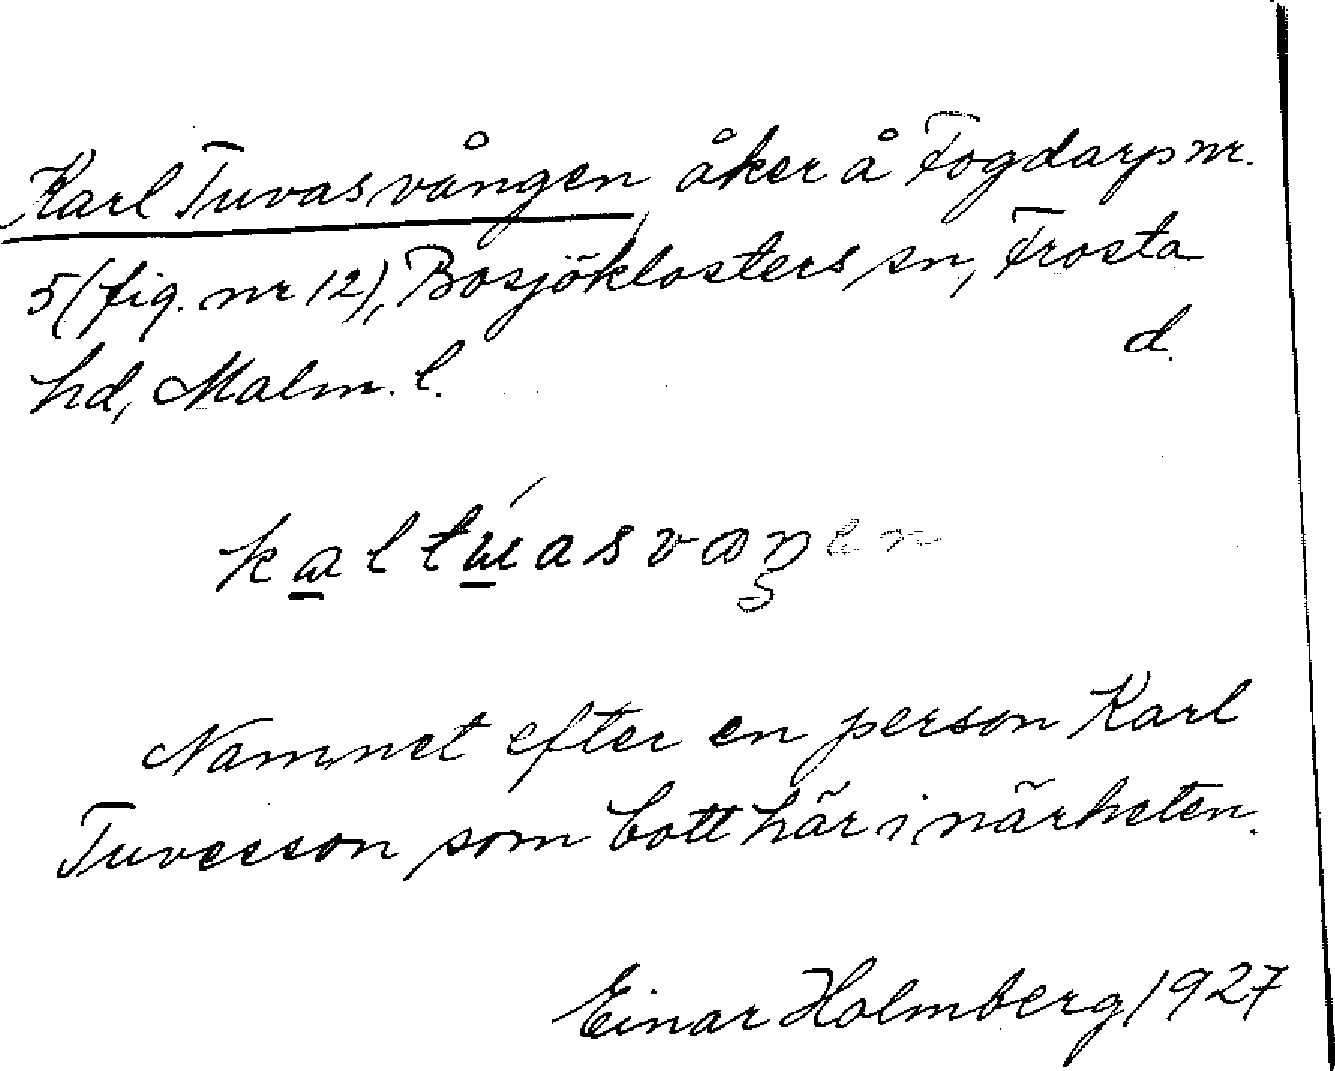 Karl Tuvasvången, åker å Fogdarp nr.
5 (fig. nr 12), Bosjöklosters sn, Frosta
hd, Malm. l.
d.
Namnet efter en person Karl
Tuvesson som bott här i närheten.
Einar Holmberg 1927